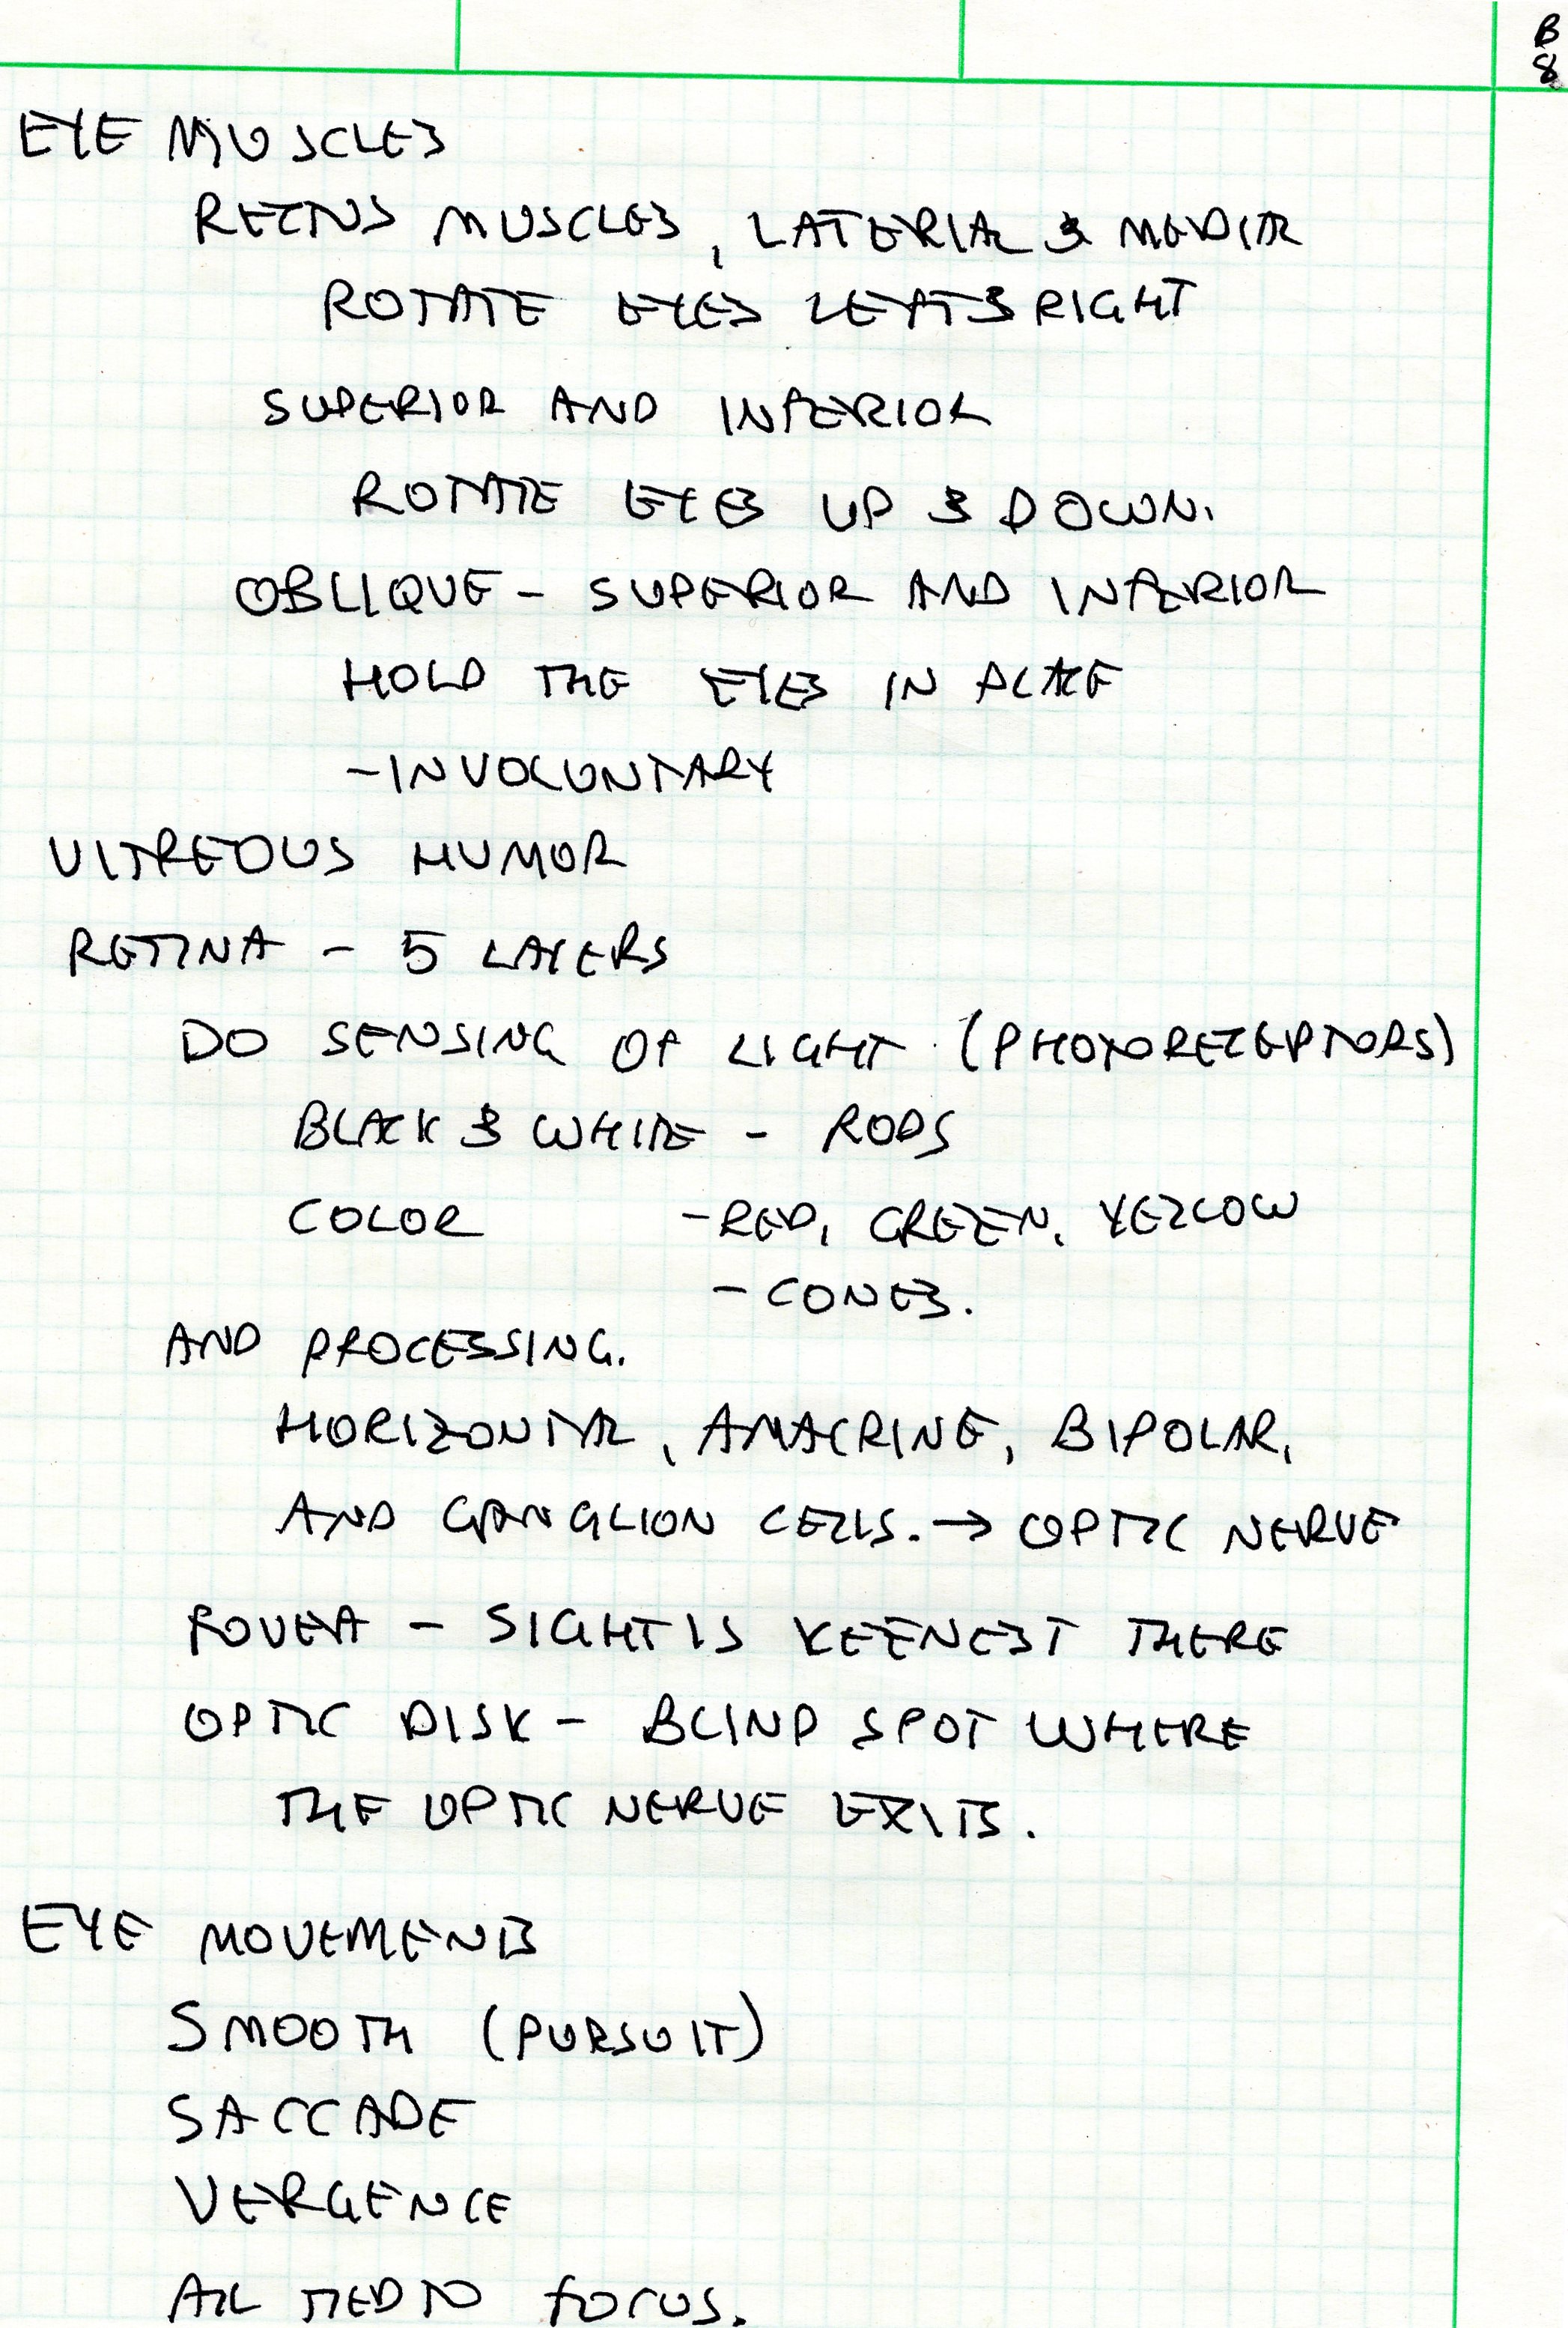 B
8
EYE MUSCLES
RECTUS MUSCLES, LATERIAL & MEDIAL
ROTATE EYES LEFT & RIGHT
SUPERIOR AND INFERIOR
ROTATE EYES UP & DOWN.
OBLIQUE - SUPERIOR AND INFERIOR
HOLD THE EYES IN PLACE
- INVOLUNTARY
VITREOUS HUMOR
RETINA - 5 LAYERS
DO SENSING OF LIGHT (PHOTORECEPTORS)
BLACK & WHITE - RODS
COLOR - RED, GREEN, YELLOW
- CONES.
AND PROCESSING.
HORIZONTAL, AMACRINE, BIPOLAR,
AND GANGLION CELLS. → OPTIC NERVE
FOVEA - SIGHT IS KEENEST THERE
OPTIC DISK - BLIND SPOT WHERE
THE OPTIC NERVE EXITS.
EYE MOVEMENTS
SMOOTH (PURSUIT)
SACCADE
VERGENCE
ALL TIED TO FOCUS.